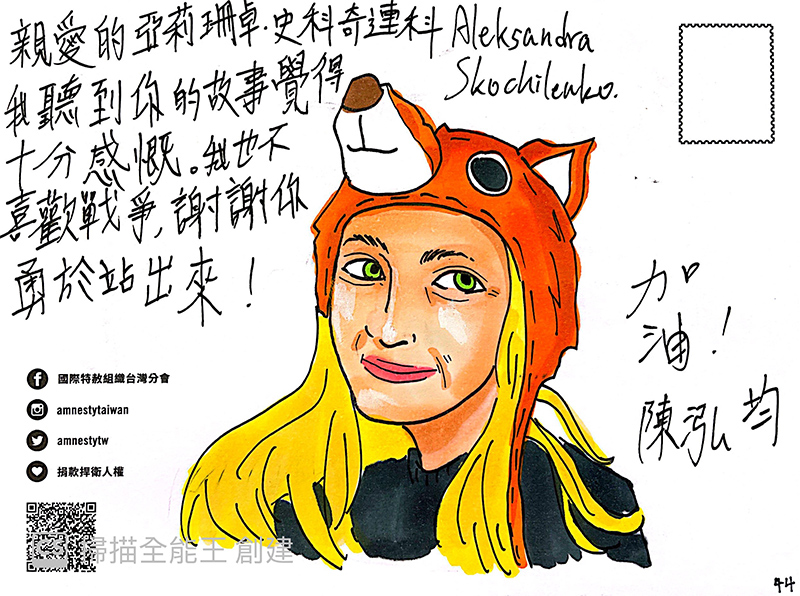 親愛的亞莉珊卓.史科奇連科 Aleksandra
Skochilenko.
我聽到你的故事覺得
十分感慨。我也不
喜歡戰爭,謝謝你
勇於站出來!
加
油!
陳泓均
國際特赦組織台灣分會
amnestytaiwan
amnestytw
捐款捍衛人權
掃描全能王 創建
44